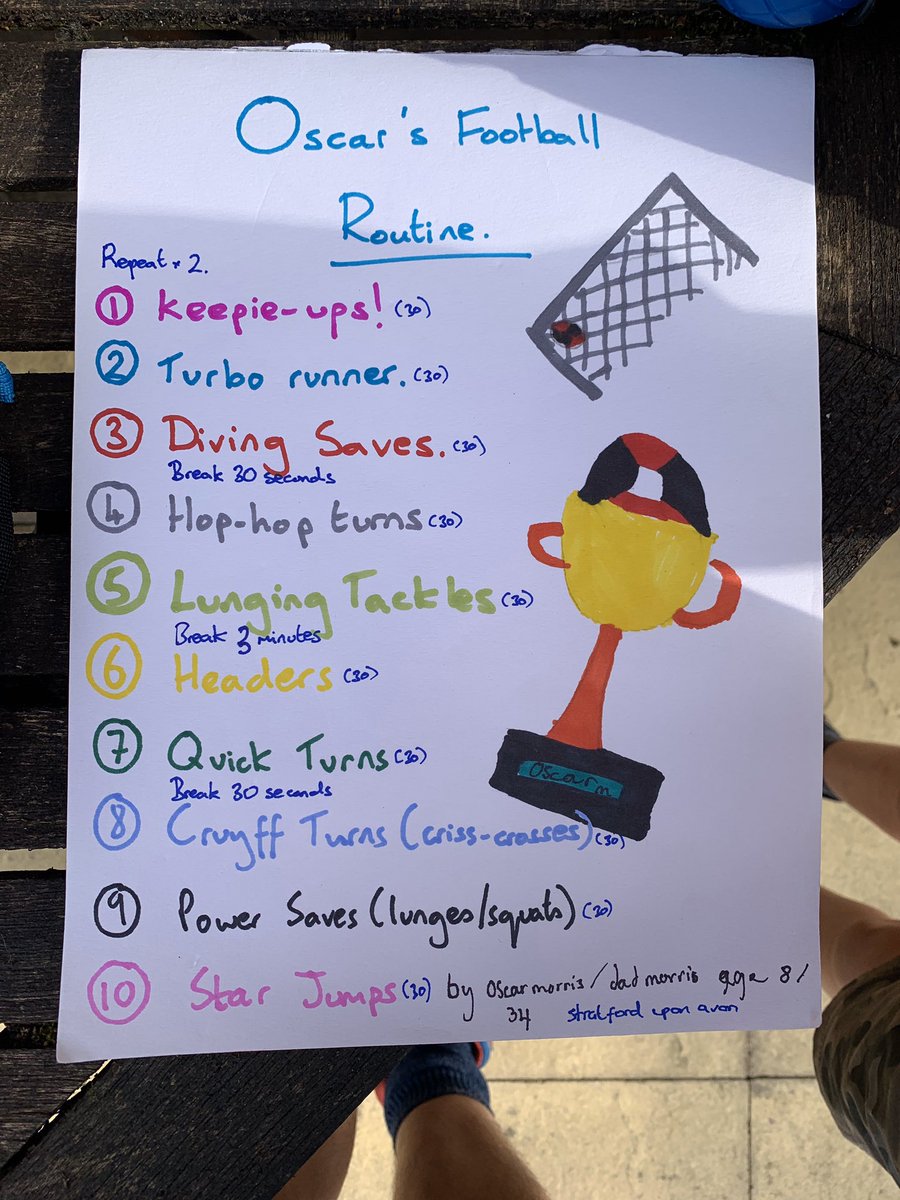 Oscar's Football
Routine.
Repeat × 2.
① Keepie-ups! (30)
② Turbo runner. (30)
③ Diving Saves. (30)
Break 30 seconds
④ Hop-hop turns (30)
⑤ Lunging Tackles (30)
Break 3 minutes
⑥ Headers (30)
⑦ Quick Turns (30)
Break 30 seconds
Oscar m
⑧ Cruyff Turns (criss-crosses) (30)
⑨ Power Saves (lunges/squats) (30)
⑩ Star Jumps (30) by Oscar morris / dad morris age 8 /
34 stratford upon avon